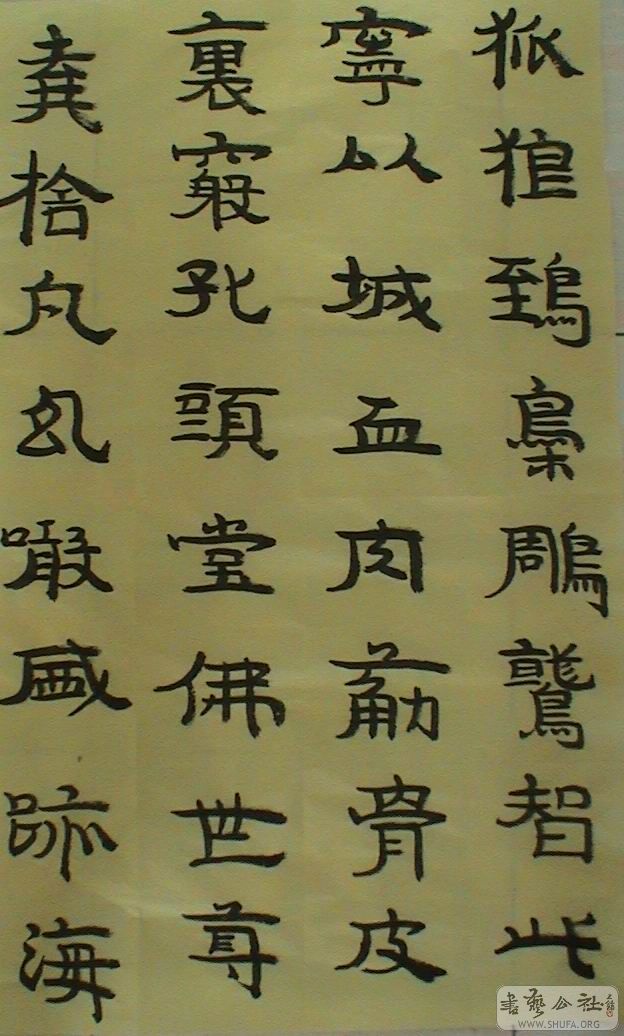 狐狼鵄梟鵰鷲智此
寧以城血肉筋骨皮
裏竅孔頭堂佛世尊
捨凡噉跡海
書藝公社
WWW.SHUFA.ORG